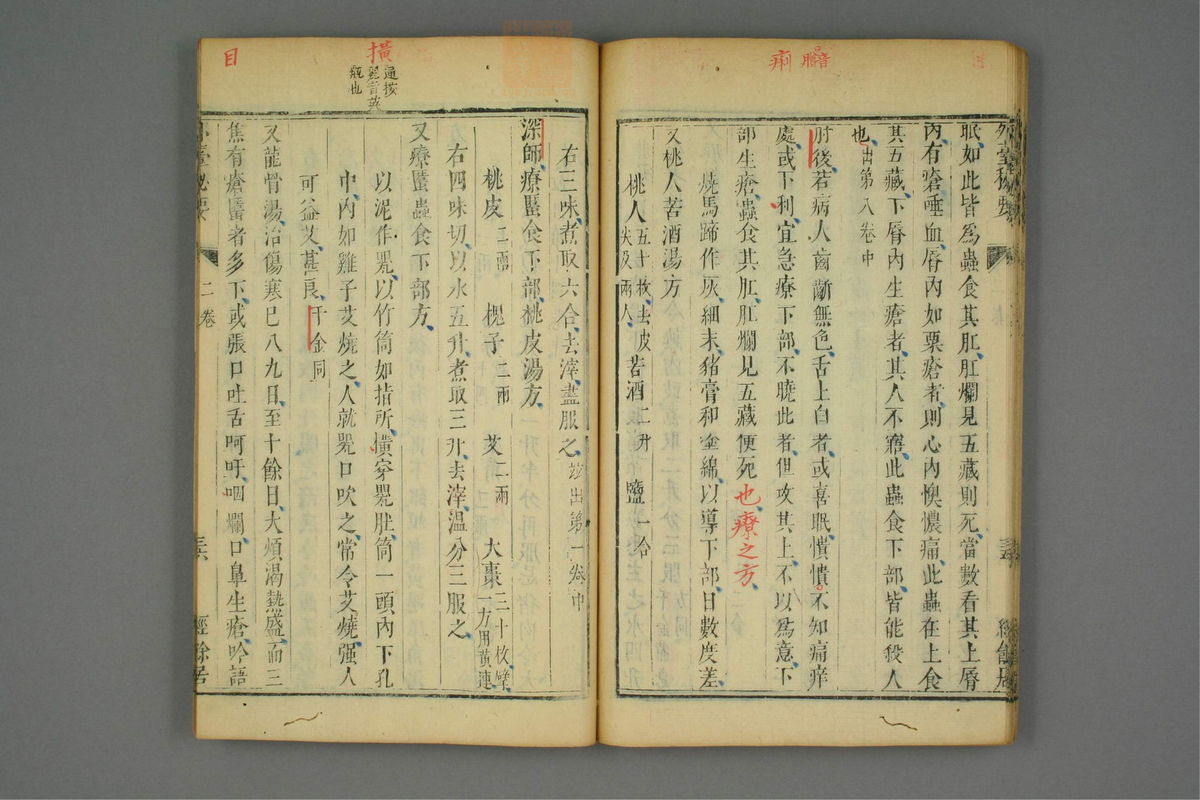 痢 膪音
外臺秘要
眠如此皆為蟲食其肛肛爛見五藏則死當數看其上脣
內有瘡唾血脣內如粟瘡者則心內懊憹痛此蟲在上食
其五藏下脣內生瘡者其人不寤此蟲食下部皆能殺人
也出第八卷中
肘後若病人齒齗無色舌上白者或喜眠憒憒不知痛痒
處或下利宜急療下部不曉此者但攻其上不以為意下
部生瘡蟲食其肛肛爛見五藏便死也療之方
燒馬蹄作灰細末豬膏和塗綿以導下部日數度差
又桃人苦酒湯方
桃人五十枚去皮尖及兩人 苦酒二升 鹽一合
右三味煮取六合去滓盡服之並出第一卷中
深師療䘌食下部桃皮湯方
桃皮二兩 槐子二兩 艾二兩 大棗三十枚擘一方用黃連
右四味切以水五升煮取三升去滓溫分三服之
又療䘌蟲食下部方
以泥作甖以竹筒如指所擴穿甖肚筒一頭內下孔
中內如雞子艾燒之人就甖口吹之常令艾燒强人
可益艾甚良千金同
又龍骨湯治傷寒已八九日至十餘日大煩渴熱盛而三
焦有瘡䘌者多下或張口吐舌呵吁咽爛口鼻生瘡吟語
外臺秘要 二卷 經餘居
擴
目